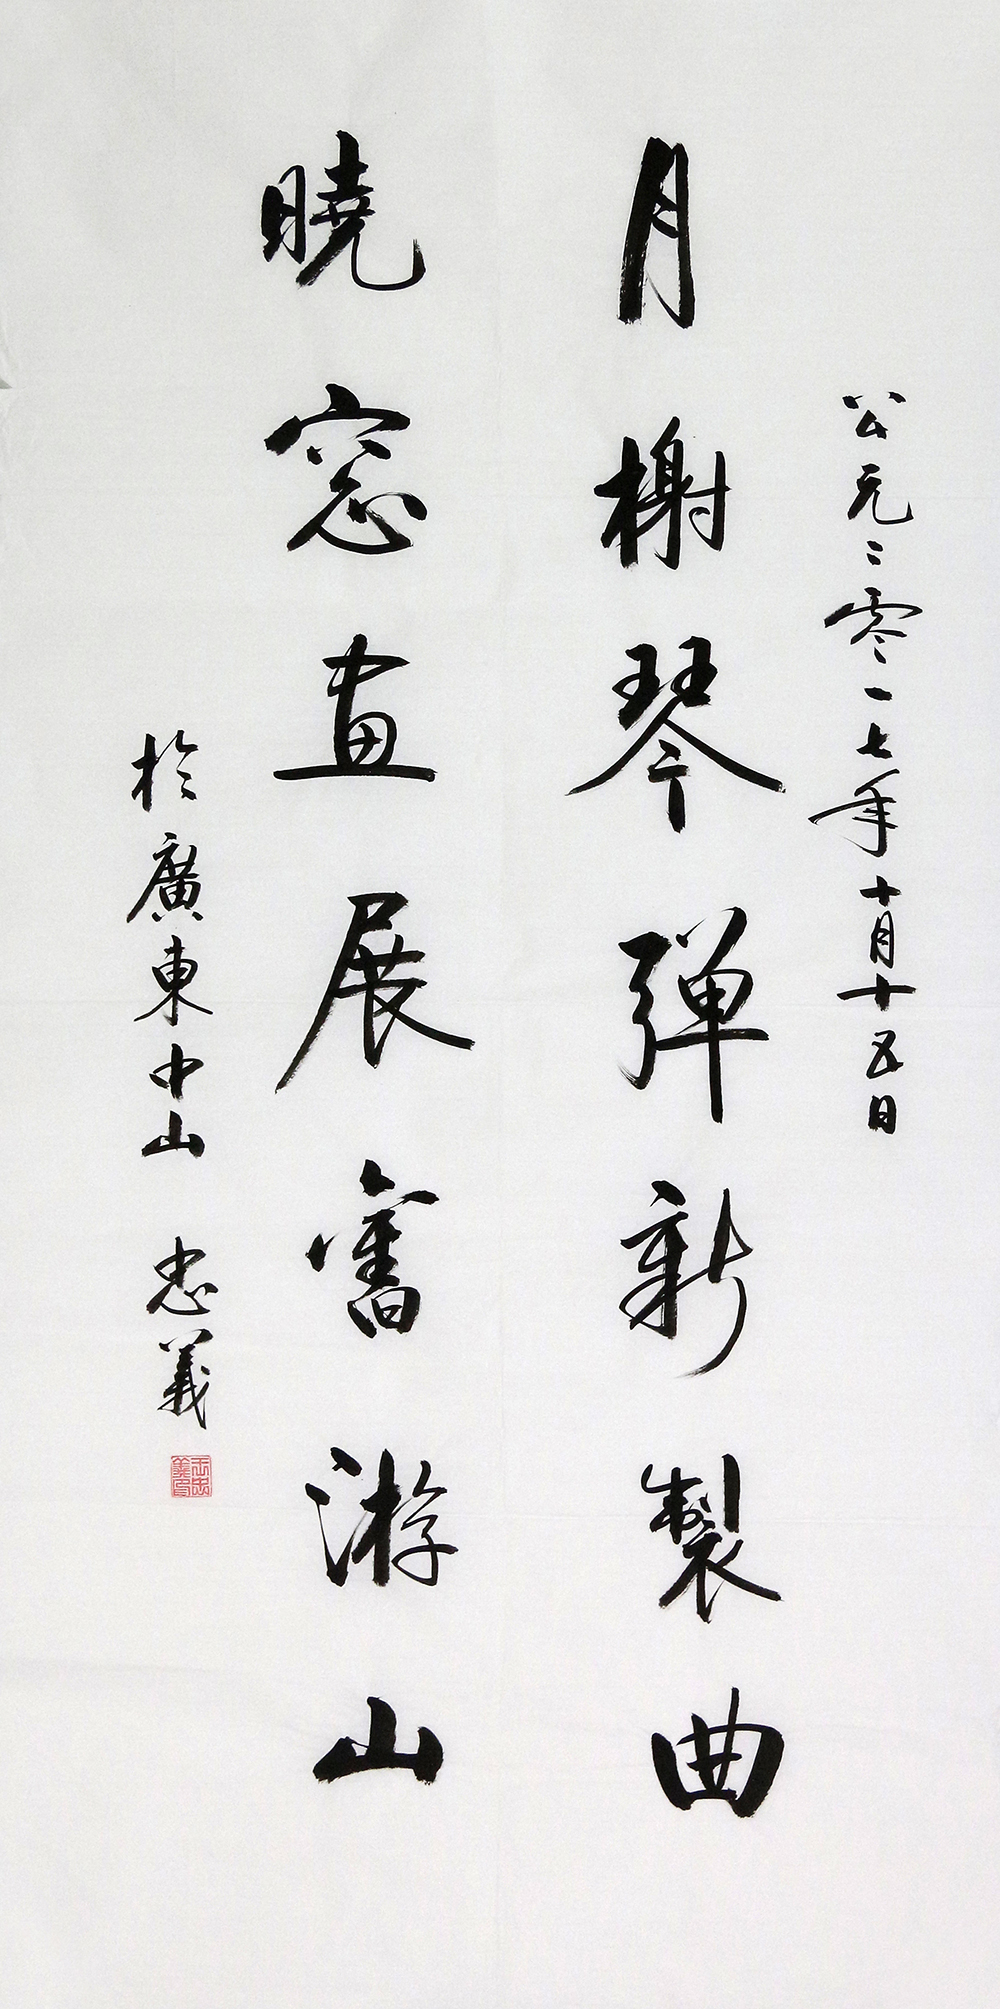 公元二零一七年十月十五日
月榭琴弹新製曲
曉窓畫展舊游山
於廣東中山 忠義